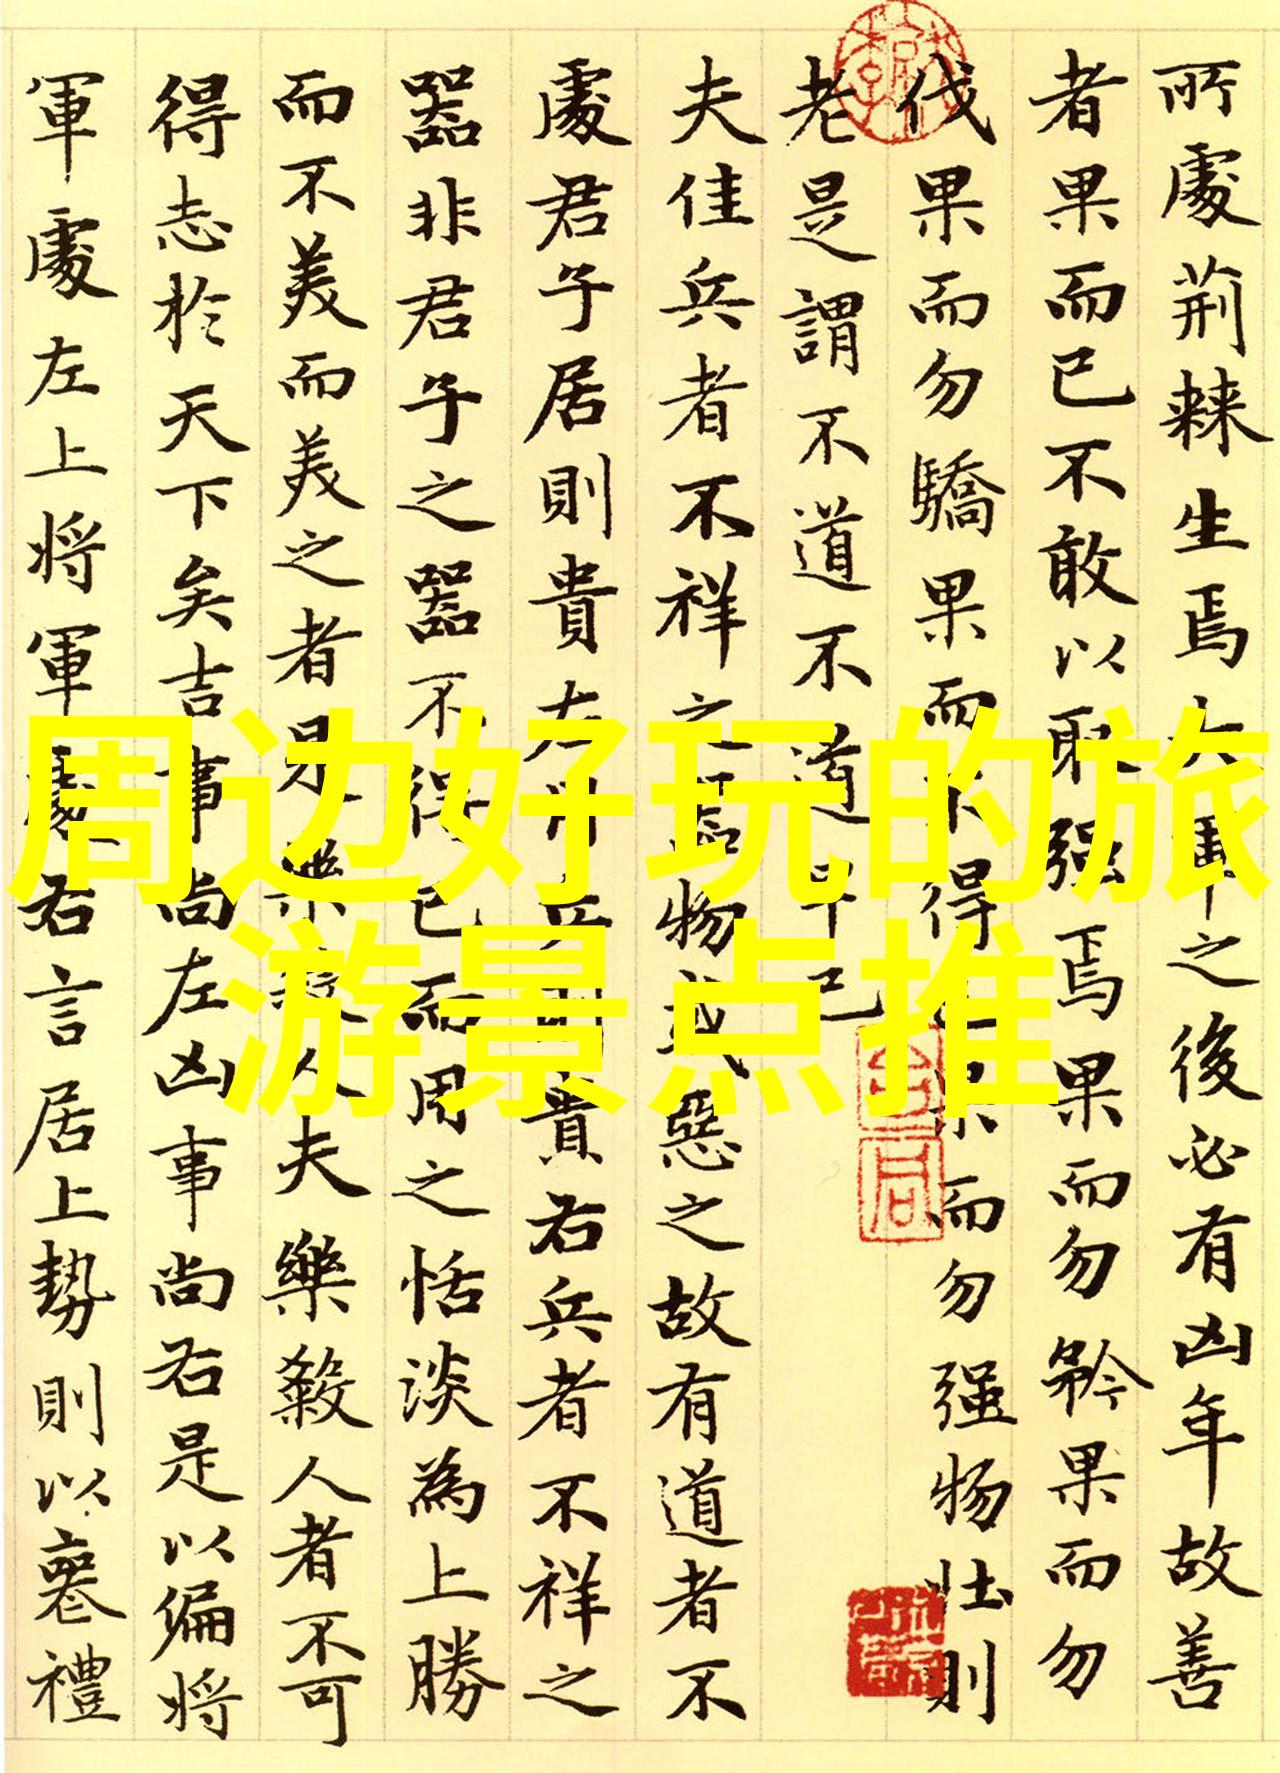 周边好玩的旅
游景点推
所處荆棘生焉大軍之後必有凶年故善
者果而已不敢以取强焉果而勿矜果而勿
伐果而勿驕果而不得已果而勿强物壮則
老是謂不道不道早已
夫佳兵者不祥之器物或惡之故有道者不
處君子居則貴左用兵則貴右兵者不祥之
器非君子之器不得已而用之恬淡為上勝
而不美而美之者是樂殺人夫樂殺人者不可
得志於天下矣吉事尚左凶事尚右是以偏将
軍處左上将軍處右言居上勢則以喪禮